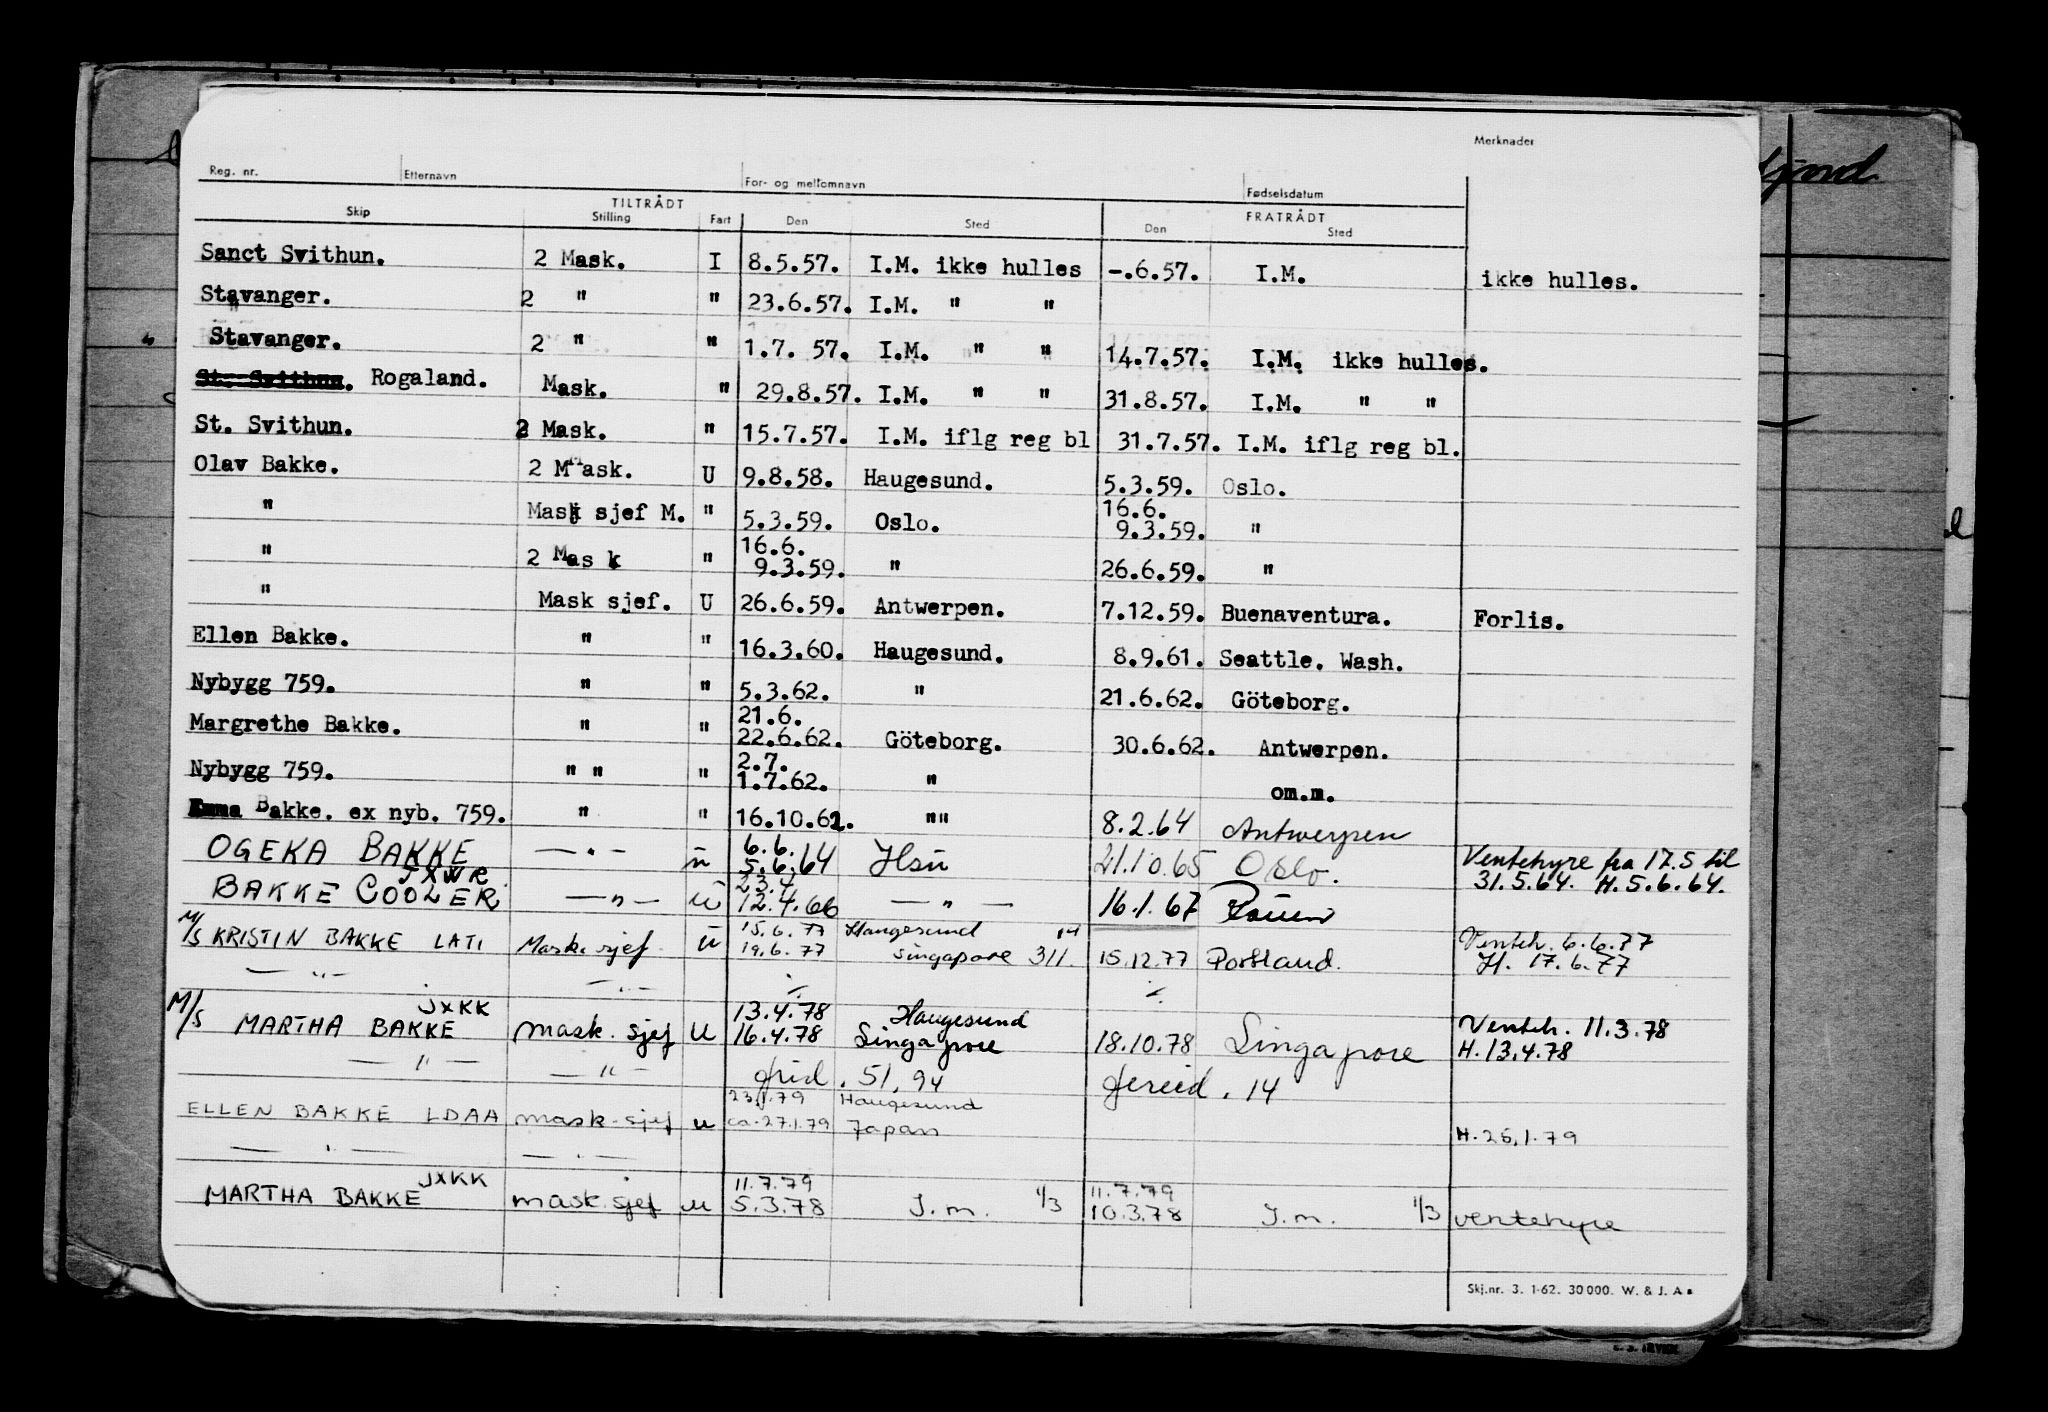 Merknader
Reg. nr. Etternavn For- og mellomnavn Fødselsdatum
TILTRÅDT FRATRÅDT
Skip Stilling Fart Den Sted Den Sted
Sanct Svithun. 2 Mask. I 8.5.57. I.M. ikke hulles -.6.57. I.M. ikke hulles.
Stavanger. 2 " " 23.6.57. I.M. " "
Stavanger. 2 " " 1.7. 57. I.M. " " 14.7.57. I.M. ikke hulles.
St. Svithun. Rogaland. Mask. " 29.8.57. I.M. " " 31.8.57. I.M. " "
St. Svithun. 2 Mask. " 15.7.57. I.M. iflg reg bl 31.7.57. I.M. iflg reg bl.
Olav Bakke. 2 Mask. U 9.8.58. Haugesund. 5.3.59. Oslo.
" Mask sjef M. " 5.3.59. Oslo. 16.6. 9.3.59. "
" 2 Mask " 16.6. 9.3.59. " 26.6.59. "
" Mask sjef. U 26.6.59. Antwerpen. 7.12.59. Buenaventura. Forlis.
Ellen Bakke. " " 16.3.60. Haugesund. 8.9.61. Seattle. Wash.
Nybygg 759. " " 5.3.62. " 21.6.62. Göteborg.
Margrethe Bakke. " " 21.6. 22.6.62. Göteborg. 30.6.62. Antwerpen.
Nybygg 759. " " " 2.7. 1.7.62. " om.m.
Emma Bakke. ex nyb. 759. " " 16.10.62. "" 8.2.64 Antwerpen
OGEKA BAKKE — " — u 6.6. 5.6.64 Hsu 21.10.65 Oslo. Ventehyre fra 17.5 til
31.5.64. H. 5.6.64.
JXWR
BAKKE COOLER — " — u 23.4 12.4.66 — " — 16.1.67
M/S KRISTIN BAKKE LATI Mask. sjef u 15.6.77 Haugesund Venteh. 6.6.77
19.6.77 Singapore 311. 15.12.77 Portland. H. 17.6.77
— " — — " —
JXKK 13.4.78 Haugesund
M/S MARTHA BAKKE mask. sjef u 16.4.78 Singapore 18.10.78 Singapore Venteh. 11.3.78
H. 13.4.78
— " — — " — gfrid . 51, 94 14
23.1.79 Haugesund
ELLEN BAKKE LDAA mask. sjef u ca. 27.1.79 Japan H. 25.1.79
— " — — " —
JXKK 11.7.79 11.7.79
MARTHA BAKKE mask. sjef u 5.3.78 I.m. 1/3 10.3.78 I.m. 1/3 ventehyre
Skj.nr. 3. 1-62. 30 000. W. & J. A s